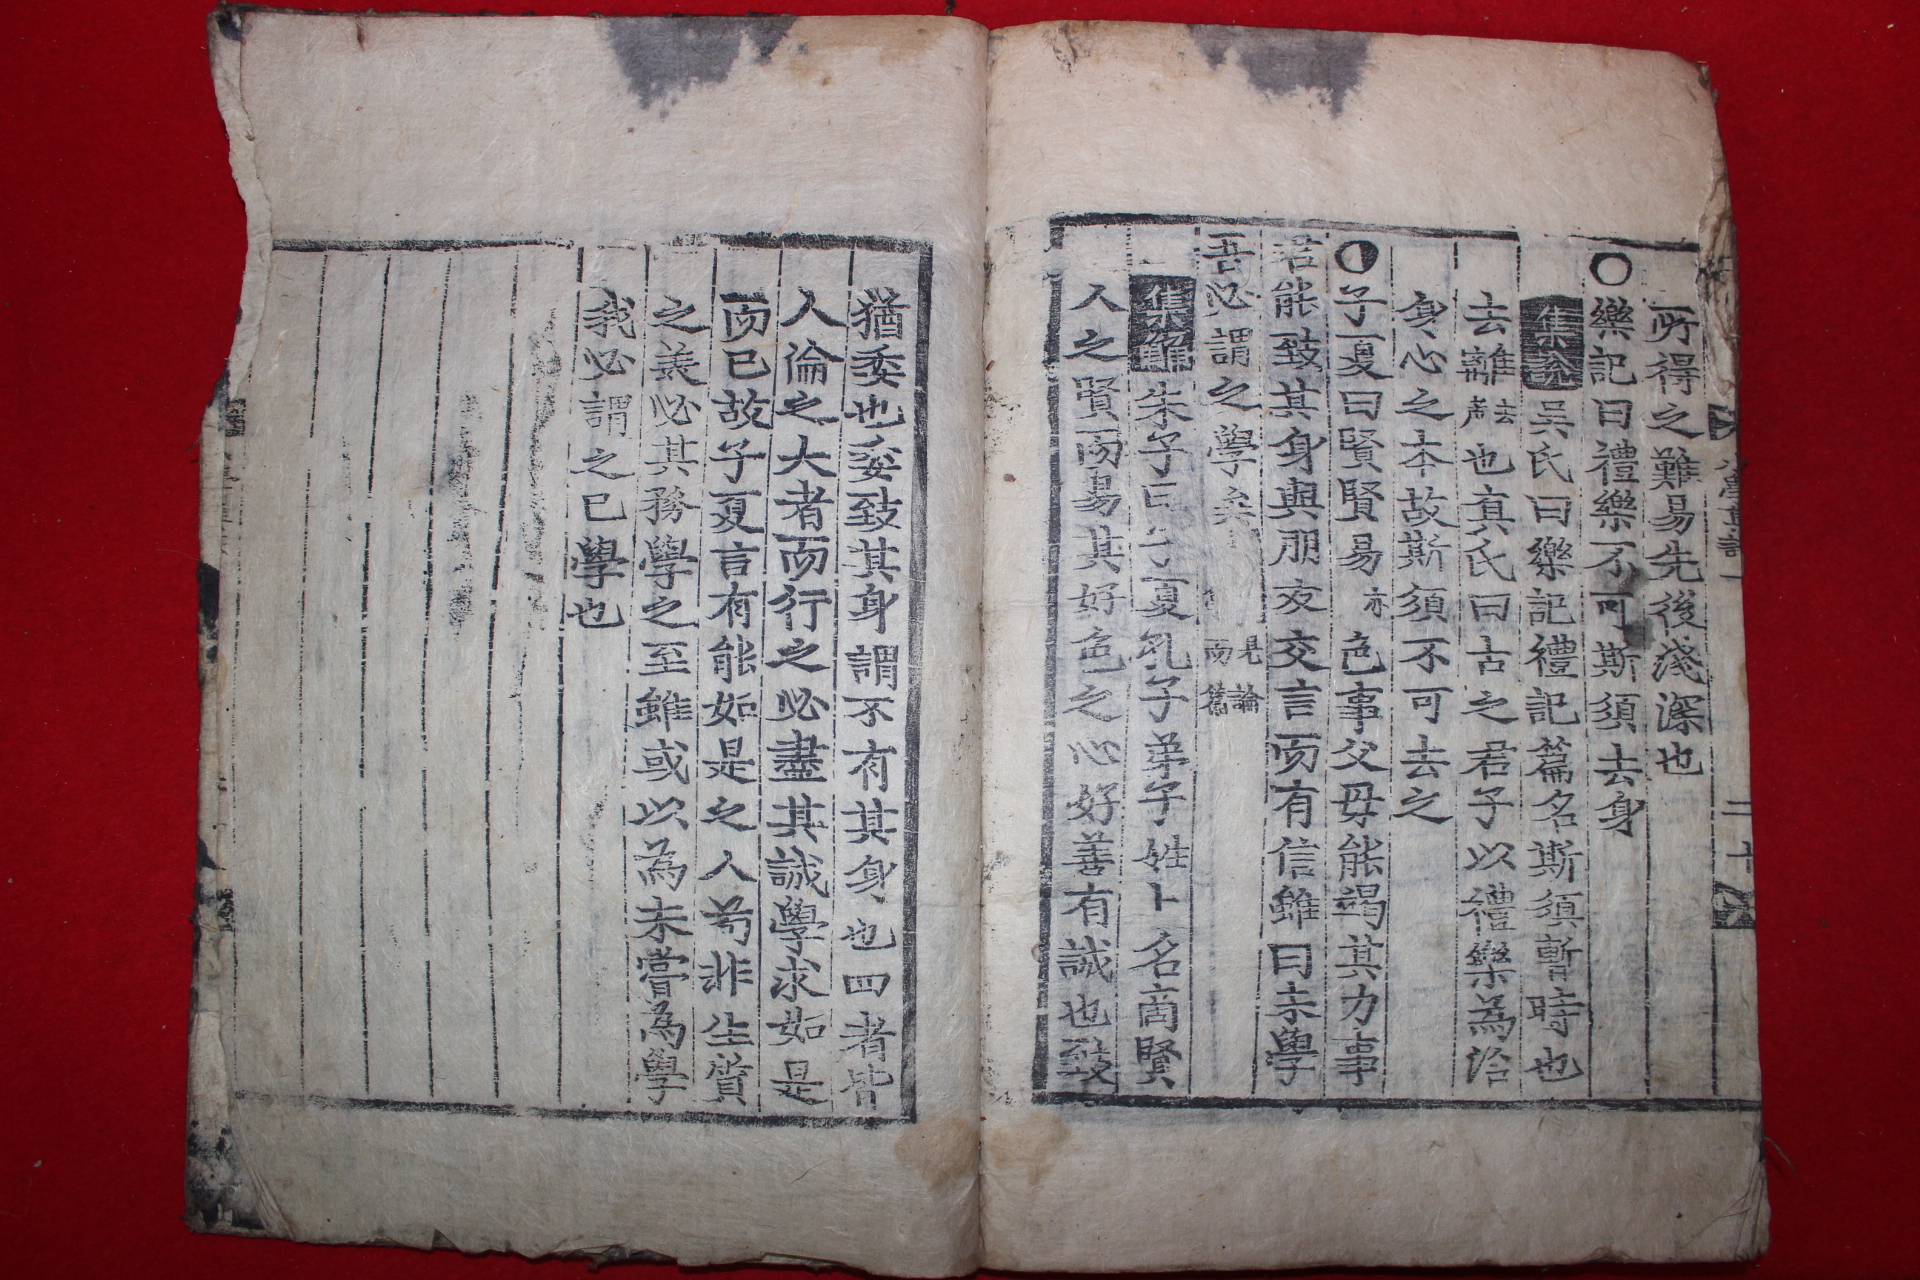 所得之難易先後淺深也
○樂記曰禮樂不可斯須去身
集說吳氏曰樂記禮記篇名斯須暫時也
去離也眞氏曰古之君子以禮樂爲治
身心之本故斯須不可去之
子夏曰賢賢易色事父母能竭其力事
君能致其身與朋友交言而有信雖曰未學
吾必謂之學矣
集解朱子曰子夏孔子弟子姓卜名商賢
人之賢而易其好色之心好善有誠也致
猶委也委致其身謂不有其身也四者皆
人倫之大者而行之必盡其誠學求如是
而已故子夏言有能如是之人苟非生質
之美必其務學之至雖或以爲未嘗爲學
我必謂之已學也